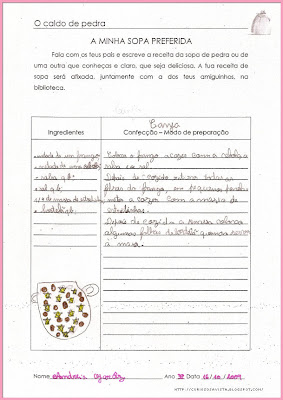 O caldo de pedra
A MINHA SOPA PREFERIDA
Fala com os teus pais e escreve a receita da sopa de pedra ou de
uma outra que conheças e claro, que seja deliciosa. A tua receita de
sopa será afixada, juntamente com a dos teus amiguinhos, na
biblioteca.
Canja
Ingredientes
Confecção – Modo de preparação
metade de um frango
Coloca o frango a cozer com a cebola
metade de uma cebola
salsa e o sal.
salsa q.b.
Depois de cozido retiro todas as
sal q.b.
do frango, em pequenos
massa de
a cozer com a massa de
hortelã q.b.
estrelinhas.
Depois de cozida a massa coloca
algumas folhas de hortelã quando
a massa.
Nome Ano Data 16/10/2009
HTTP://CURIOSAVISTA.BLOGSPOT.COM/